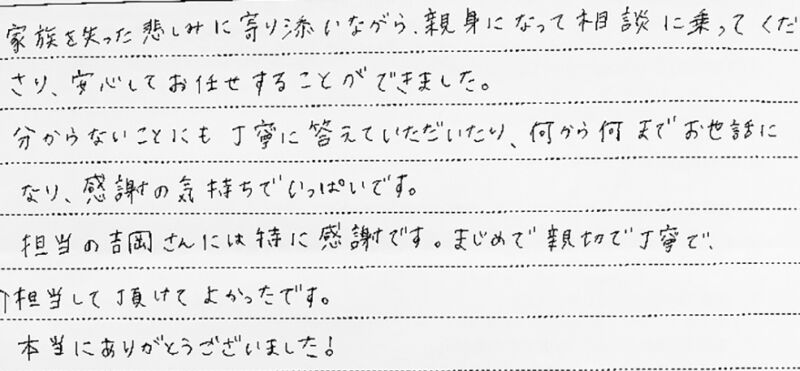 家族を失った悲しみに寄り添いながら、親身になって相談に乗ってくだ
さり、安心してお任せすることができました。
分からないことにも丁寧に答えていただいたり、何から何までお世話に
なり、感謝の気持ちでいっぱいです。
担当の吉岡さんには特に感謝です。まじめで親切で丁寧で、
担当して頂けてよかったです。
本当にありがとうございました！